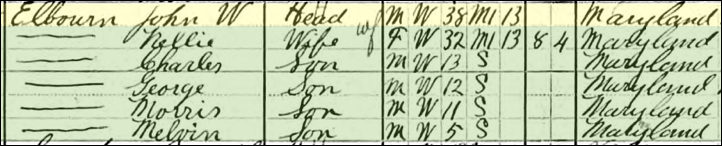 Elbourn John W Head M W 38 M1 13 Maryland
—— Nellie Wife F W 32 M1 13 8 4 Maryland
—— Charles Son M W 13 S Maryland
—— George Son M W 12 S Maryland
—— Morris Son M W 11 S Maryland
—— Melvin Son M W 5 S Maryland